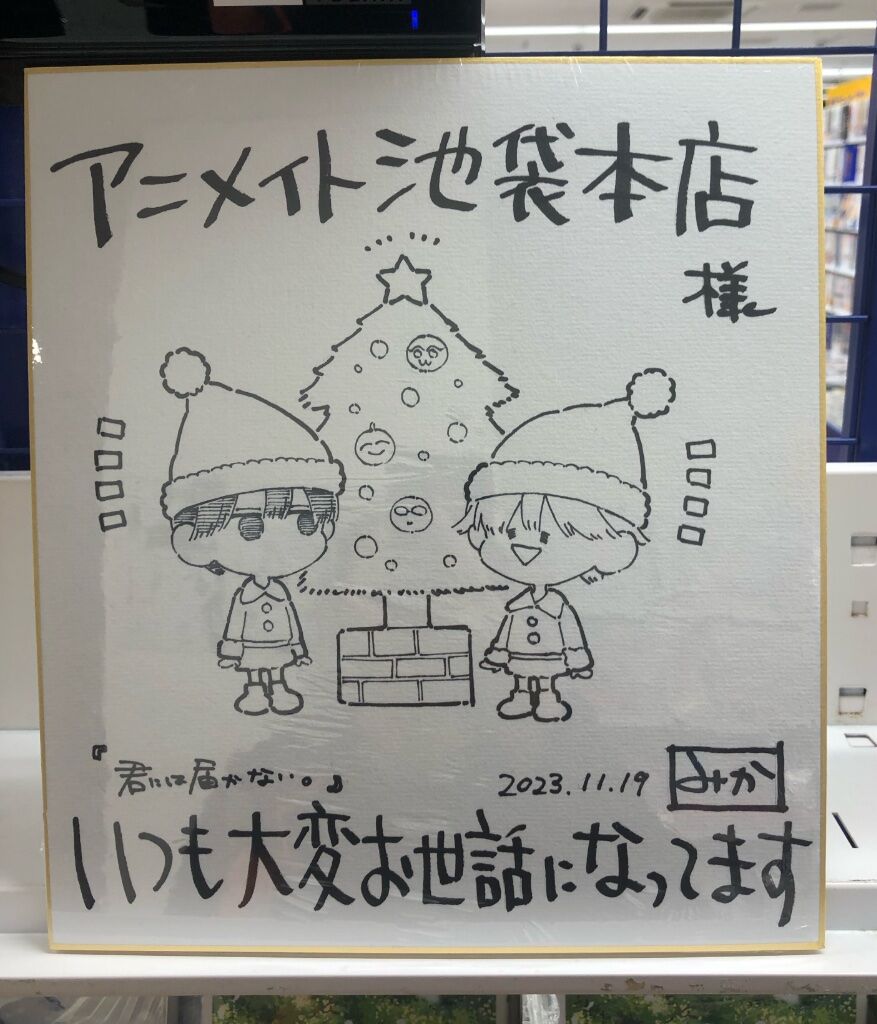 アニメイト池袋本店
様
『君には届かない。』
2023.11.19
みか
いつも大変お世話になってます